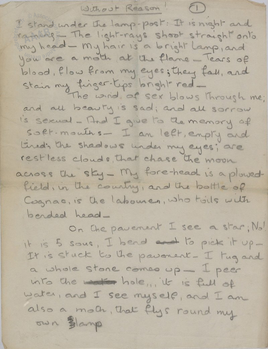 Without Reason 1
I stand under the lamp-post. It is night and
raining — The light-rays shoot straight onto
my head — My hair is a bright lamp, and
you are a moth at the flame — Tears of
blood, flow from my eyes; they fall, and
stain my finger-tips bright red —
The wind of sex blows through me;
and all beauty is sad; and all sorrow
is sexual — And I give to the memory of
soft-mouths — I am left, empty and
tired; the shadows under my eyes; are
restless clouds that chase the moon
across the sky — My fore-head is a plowed
field, in the country; and the bottle of
Cognac, is the labourer, who toils with
bended head —
On the pavement I see a star; No!
it is 5 sous, I bend to pick it up —
It is stuck to the pavement — I tug and
a whole stone comes up — I peer
into the hole... it is full of
water, and I see myself, and I am
also a moth, that flys round my
own lamp